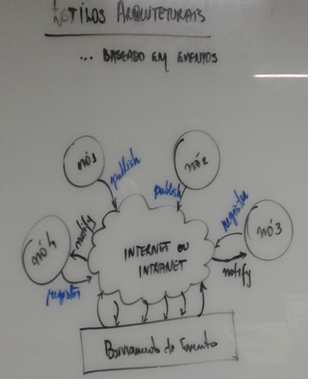 ESTILOS ARQUITETURAIS
... BASEADO EM EVENTOS
nó1
nó2
publish
publish
nó4
notify
register
INTERNET OU
INTRANET
register
nó3
notify
Barramento de Evento